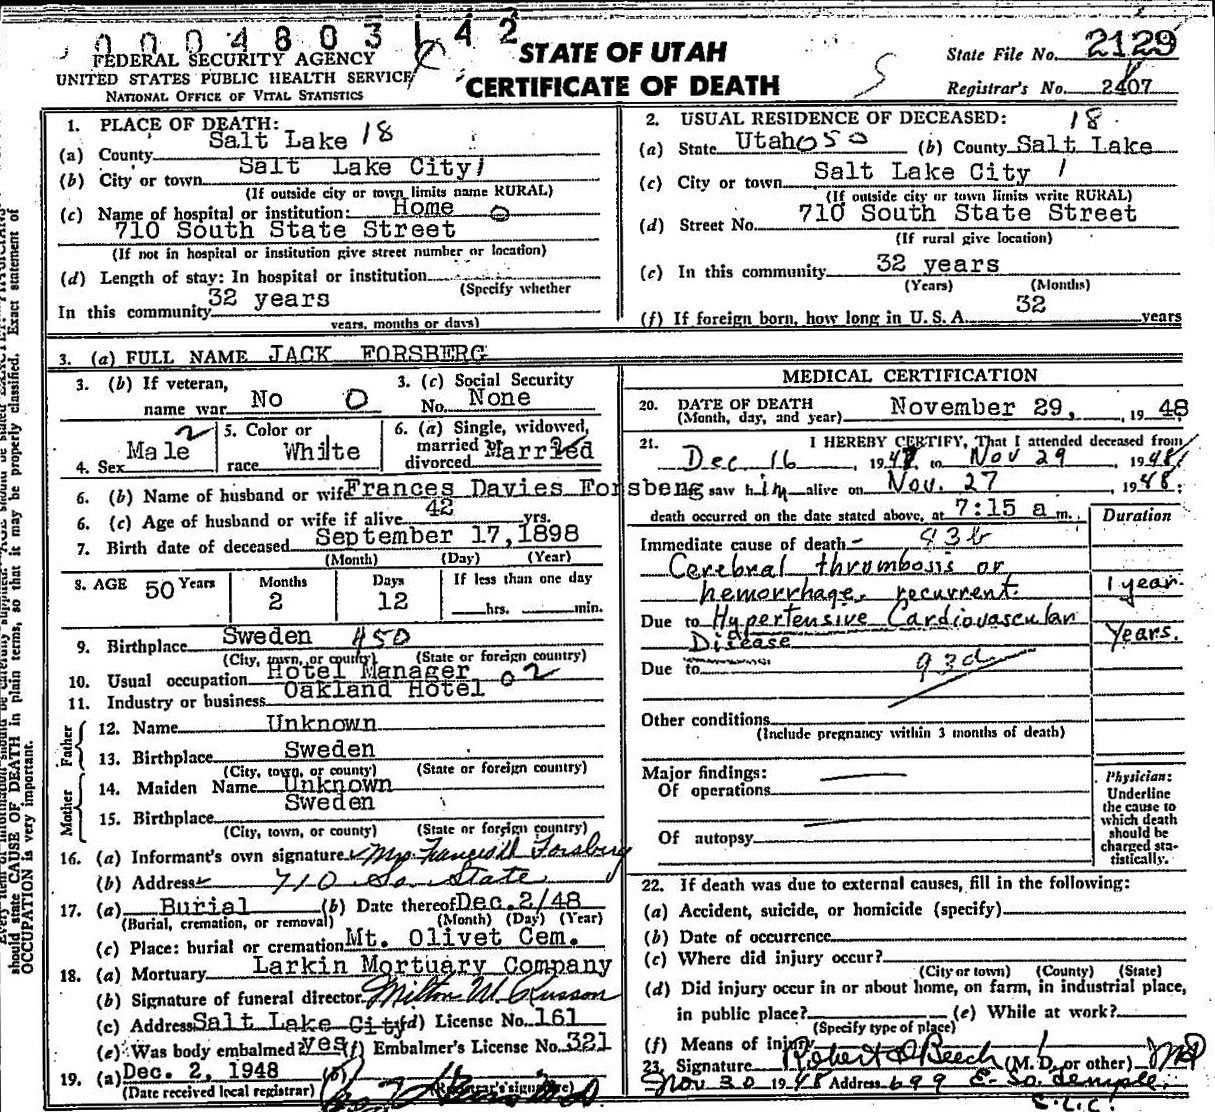 0004803142
FEDERAL SECURITY AGENCY
UNITED STATES PUBLIC HEALTH SERVICE
NATIONAL OFFICE OF VITAL STATISTICS
STATE OF UTAH
CERTIFICATE OF DEATH
State File No. 2129
Registrar's No. 2407
1. PLACE OF DEATH:
(a) County Salt Lake 18
(b) City or town Salt Lake City 1
(If outside city or town limits name RURAL)
(c) Name of hospital or institution: Home 0
710 South State Street
(If not in hospital or institution give street number or location)
(d) Length of stay: In hospital or institution
(Specify whether
In this community 32 years
years, months or days)
2. USUAL RESIDENCE OF DECEASED: 18
(a) State Utah 050 (b) County Salt Lake
(c) City or town Salt Lake City 1
(If outside city or town limits write RURAL)
(d) Street No. 710 South State Street
(If rural give location)
(e) In this community 32 years
(Years) (Months)
(f) If foreign born, how long in U. S. A. 32 years
3. (a) FULL NAME JACK FORSBERG
3. (b) If veteran, name war No 0
3. (c) Social Security No. None
4. Sex Male 2
5. Color or race White
6. (a) Single, widowed, married divorced Married
6. (b) Name of husband or wife Frances Davies Forsberg
6. (c) Age of husband or wife if alive 42 yrs.
7. Birth date of deceased September 17, 1898
(Month) (Day) (Year)
8. AGE 50 Years Months 2 Days 12 If less than one day hrs. min.
9. Birthplace Sweden 450
(City, town, or county) (State or foreign country)
10. Usual occupation Hotel Manager 02
11. Industry or business Oakland Hotel
Father
12. Name Unknown
13. Birthplace Sweden
(City, town, or county) (State or foreign country)
Mother
14. Maiden Name Unknown
15. Birthplace Sweden
(City, town, or county) (State or foreign country)
16. (a) Informant's own signature Mrs Frances D Forsberg
(b) Address 710 So. State
17. (a) Burial (b) Date thereof Dec. 2/48
(Burial, cremation, or removal) (Month) (Day) (Year)
(c) Place: burial or cremation Mt. Olivet Cem.
18. (a) Mortuary Larkin Mortuary Company
(b) Signature of funeral director Milton W. Russon
(c) Address Salt Lake City (d) License No. 161
(e) Was body embalmed? yes (f) Embalmer's License No. 321
19. (a) Dec. 2, 1948 (b)
(Date received local registrar) (Registrar's signature)
MEDICAL CERTIFICATION
20. DATE OF DEATH
(Month, day, and year) November 29, 1948
21. I HEREBY CERTIFY, That I attended deceased from
Dec 16, 1947, to Nov 29 1948
last saw him alive on Nov. 27, 1948;
death occurred on the date stated above, at 7:15 a m. Duration
Immediate cause of death 83b
Cerebral thrombosis or
hemorrhage, recurrent 1 year.
Due to Hypertensive Cardiovascular
Disease Years.
Due to 93d
Other conditions
(Include pregnancy within 3 months of death)
Major findings:
Of operations
Of autopsy
Physician:
Underline
the cause to
which death
should be
charged sta-
tistically.
22. If death was due to external causes, fill in the following:
(a) Accident, suicide, or homicide (specify)
(b) Date of occurrence
(c) Where did injury occur?
(City or town) (County) (State)
(d) Did injury occur in or about home, on farm, in industrial place,
in public place? (e) While at work?
(Specify type of place)
(f) Means of injury
23. Signature Robert D Beech (M. D. or other) MD
Nov 30 1948 Address 699 E. So. Temple
S.L.C.
should state CAUSE OF DEATH in plain terms, so that it may be properly classified. Exact statement of
OCCUPATION is very important.